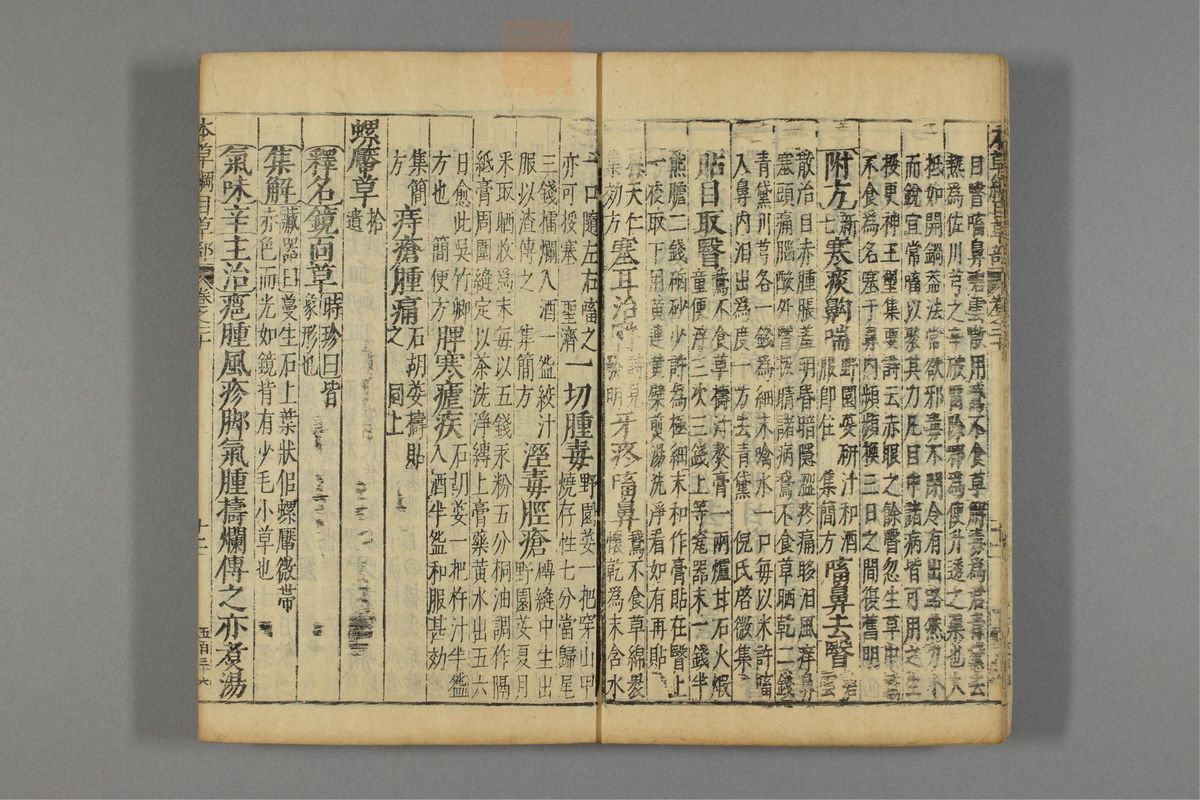 目瞖㗜鼻碧雲散用鵞不食草解毒為君青黛去
熱為佐川芎之辛破留除邪為使升透之藥也大
抵如開鍋蓋法常欲邪毒不閉令有出路然力小
而銳宜常㗜以聚其力凡目中諸病皆可用之生
挼更神王璽集要詩云赤眼之餘瞖忽生草中鵞
不食為名塞于鼻内頻頻換三日之間復舊明
附方新七寒痰齁喘野園荽研汁和酒服即住 集簡方 㗜鼻去瞖碧雲
散治目赤腫脹羞明昏暗隱澀疼痛眵泪風痒鼻
塞頭痛腦酸外瞖扳睛諸病鵞不食草晒乾二錢
青黛川芎各一錢為細末噙水一口每以米許㗜
入鼻内泪出為度一方去青黛 倪氏啓微集
貼目取瞖鵞不食草擣汁熬膏一兩爐甘石火煅
童便淬三次三錢上等瓷器末一錢半
熊膽二錢硇砂少許為極細末和作膏貼在瞖上
一夜取下用黄連黄蘗煎湯洗淨看如有再貼
孫天仁集効方 塞耳治瞖詩見發明 牙疼㗜鼻鵞不食草綿裹懷乾為末含水
一口隨左右㗜之亦可挼塞 聖濟 一切腫毒野園荽一把穿山甲燒存性七分當歸尾
三錢擂爛入酒一盌絞汁服以渣傅之 集簡方 溼毒脛瘡磚縫中生出野園荽夏月
采取晒收為末毎以五錢汞粉五分桐油調作隔
紙膏周圍縫定以茶洗淨縛上膏藥黄水出五六
日愈此吳竹卿方也 簡便方 脾寒瘧疾石胡荽一把杵汁半盌入酒半盌和服甚効
集簡方 痔瘡腫痛石胡荽擣貼之 同上
螺厴草拾遺
釋名鏡面草時珍曰皆象形也
集解藏器曰蔓生石上葉狀佀螺厴微帯赤色而光如鏡背有少毛小草也
氣味辛主治癰腫風疹脚氣腫擣爛傅之亦煮湯